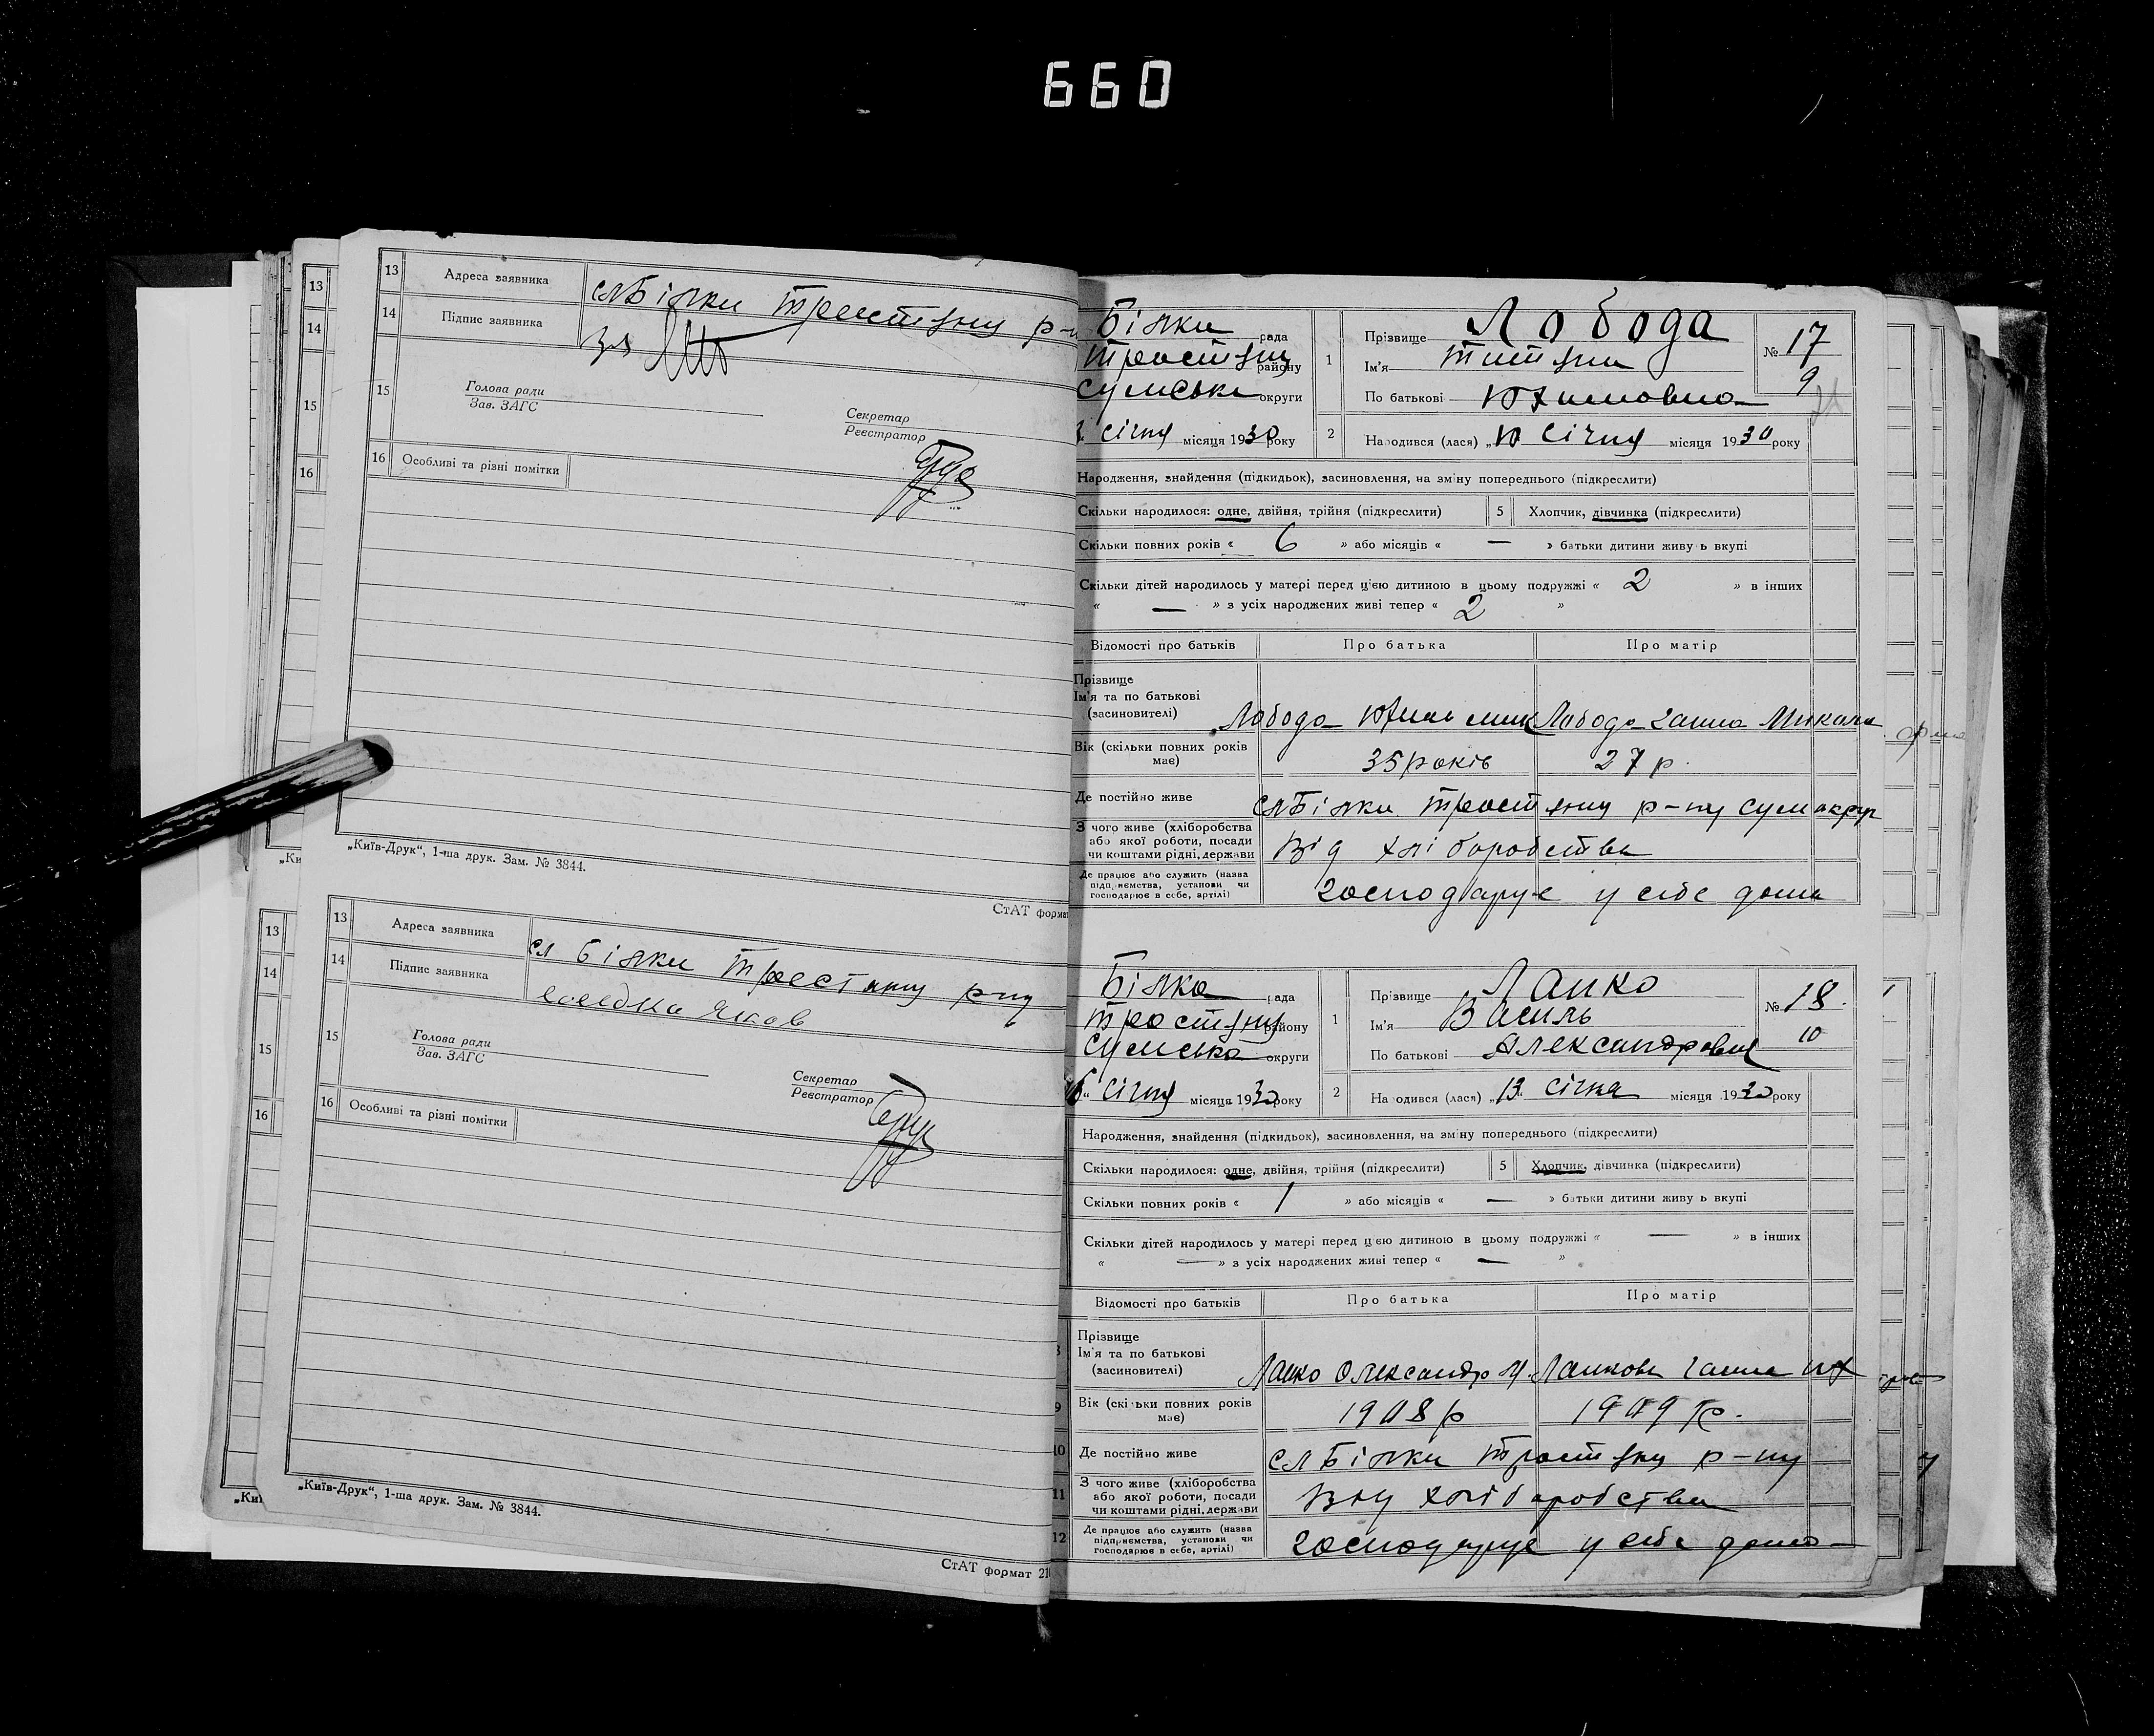 660
13 Адреса заявника сл Білки Тростян р-н
14 Підпис заявника
15 Голова ради
Зав. ЗАГС
Секретар
Реєстратор
16 Особливі та різні помітки
„Київ-Друк“, 1-ша друк. Зам. № 3844.
СтАТ формат
13 Адреса заявника сл Білки р-ну
14 Підпис заявника Яков
15 Голова ради
Зав. ЗАГС
Секретар
Реєстратор
16 Особливі та різні помітки
„Київ-Друк“, 1-ша друк. Зам. № 3844.
СтАТ формат 210
Білки рада
району
Сумська округи
січня місяця 1930 року
1 Прізвище Лобода
Ім'я
По батькові Юхимовна
№ 17
9
2 Народився (лася) „10 Січня місяця 1930 року
Народження, знайдення (підкидьок), засиновлення, на зміну попереднього (підкреслити)
Скільки народилося: одне, двійня, трійня (підкреслити) 5 Хлопчик, дівчинка (підкреслити)
Скільки повних років « 6 » або місяців « — » батьки дитини живуь вкупі
Скільки дітей народилось у матері перед цією дитиною в цьому подружжі « 2 » в інших
« — » з усіх народжених живі тепер « 2 »
Відомості про батьків Про батька Про матір
Прізвище
Ім'я та по батькові
(засиновителі) Лобода Юхим Лобода Ганна Микола
Вік (скільки повних років
має) 35 років 27 р.
Де постійно живе сл Білки р-ну Сум округ
З чого живе (хліборобства
або якої роботи, посади
чи коштами рідні, держави Від хліборобства
Де працює або служить (назва
підприємства, установи чи
господарює в себе, артілі) господарує у себе дома
Білка рада
району
Сумська округи
січня місяця 1930 року
1 Прізвище Лапко
Ім'я Василь
По батькові Александрович
№ 18.
10
2 На одився (лася) „13 січня місяця 1930 року
Народження, знайдення (підкидьок), засиновлення, на зміну попереднього (підкреслити)
Скільки народилося: одне, двійня, трійня (підкреслити) 5 Хлопчик, дівчинка (підкреслити)
Скільки повних років « 1 » або місяців « — » батьки дитини живуь вкупі
Скільки дітей народилось у матері перед цією дитиною в цьому подружжі « — » в інших
« — » з усіх народжених живі тепер « — »
Відомості про батьків Про батька Про матір
Прізвище
Ім'я та по батькові
(засиновителі) Лапко Олександр Лапкова Ганна
9 Вік (скільки повних років
має) 1908 р 1909 р.
10 Де постійно живе сл Білки р-ну
11 З чого живе (хліборобства
або якої роботи, посади
чи коштами рідні, держави від хліборобства
12 Де працює або служить (назва
підприємства, установи чи
господарює в себе, артілі) господарує у себе дома